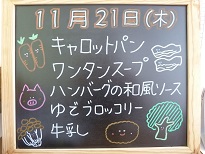 11月21日(木)
キャロットパン
ワンタンスープ
ハンバーグの和風ソース
ゆでブロッコリー
牛乳